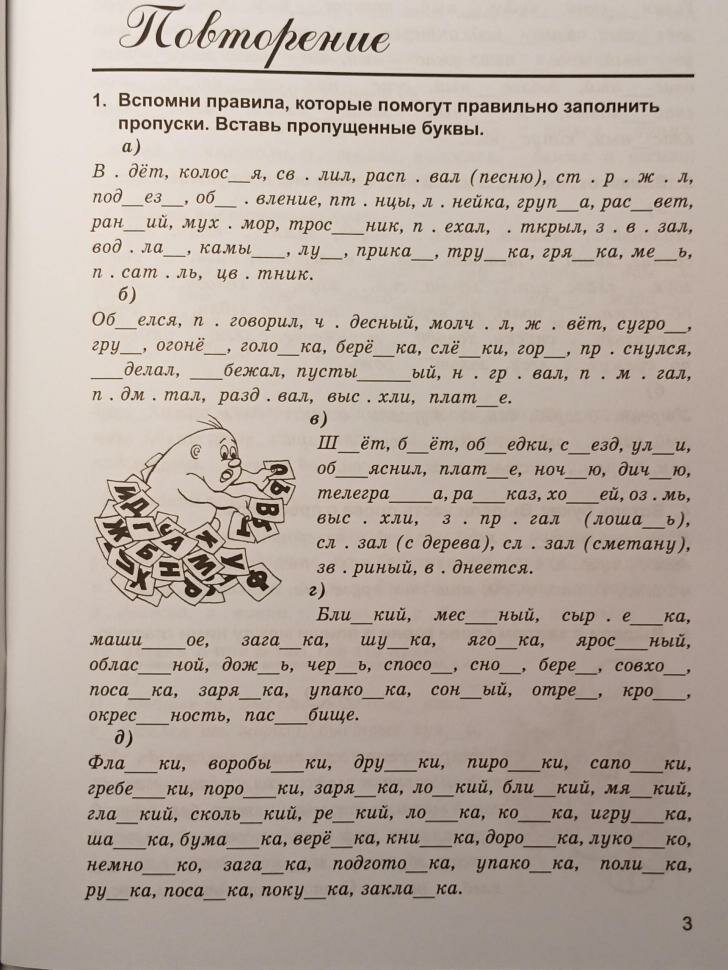 Повторение
1. Вспомни правила, которые помогут правильно заполнить
пропуски. Вставь пропущенные буквы.
а)
В . дёт, колос__я, св . лил, расп . вал (песню), ст . р . ж . л,
под__ез__, об__ . вление, пт . нцы, л . нейка, груп__а, рас__вет,
ран__ий, мух . мор, трос___ник, п . ехал, . ткрыл, з . в . зал,
вод . ла__, камы___, лу__, прика__, тру__ка, гря__ка, ме__ь,
п . сат . ль, цв . тник.
б)
Об__елся, п . говорил, ч . десный, молч . л, ж . вёт, сугро__,
гру__, огонё__, голо__ка, берё__ка, слё__ки, гор__, пр . снулся,
___делал, ___бежал, пусты_____ый, н . гр . вал, п . м . гал,
п . дм . тал, разд . вал, выс . хли, плат__е.
в)
Ш__ёт, б__ёт, об__едки, с__езд, ул__и,
об___яснил, плат__е, ноч__ю, дич__ю,
телегра____а, ра___каз, хо___ей, оз . мь,
выс . хли, з . пр . гал (лоша__ь),
сл . зал (с дерева), сл . зал (сметану),
зв . риный, в . днеется.
г)
Бли__кий, мес___ный, сыр . е___ка,
маши____ое, зага__ка, шу__ка, яго__ка, ярос___ный,
облас___ной, дож__ь, чер__ь, спосо__, сно__, бере__, совхо__,
поса__ка, заря__ка, упако__ка, сон__ый, отре__, кро___,
окрес___ность, пас___бище.
д)
Фла___ки, воробы___ки, дру___ки, пиро___ки, сапо___ки,
гребе___ки, поро___ки, заря__ка, ло__кий, бли__кий, мя__кий,
гла__кий, сколь__кий, ре__кий, ло___ка, ко___ка, игру___ка,
ша___ка, бума___ка, верё__ка, кни___ка, доро___ка, луко___ко,
немно___ко, зага__ка, подгото__ка, упако__ка, поли__ка,
ру__ка, поса__ка, поку__ка, закла__ка.
3